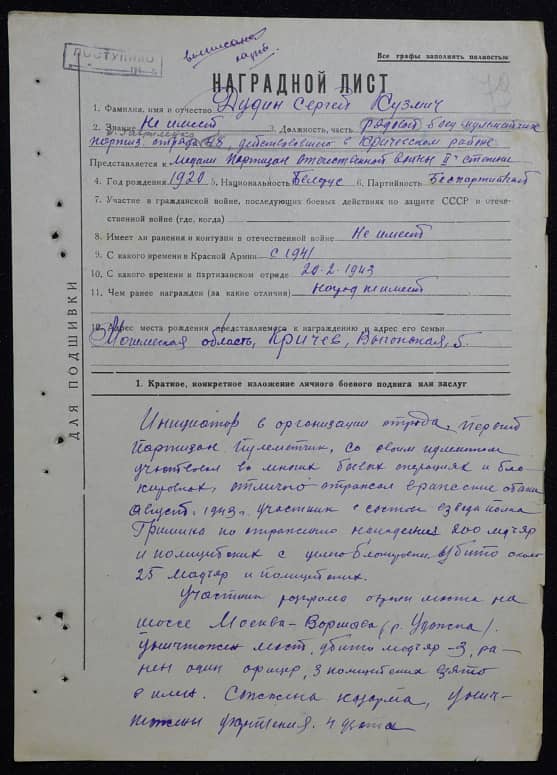 ПОСТУПИЛО
Все графы заполнять полностью
НАГРАДНОЙ ЛИСТ
1. Фамилия, имя и отчество Дудин Сергей Кузмич
2. Звание Не имеет 3. Должность, часть рядовой боец пулеметчик
партиз. отряда 48, действовавшего в Кричевском районе
Представляется к Медали Партизан отечественной войны II степени
4. Год рождения 1920 5. Национальность Белорус 6. Партийность Беспартийный
7. Участие в гражданской войне, последующих боевых действиях по защите СССР и отече-
ственной войне (где, когда)
8. Имеет ли ранения и контузии в отечественной войне Не имеет
9. С какого времени в Красной Армии с 1941
10. С какого времени в партизанском отряде 20-2-1943
11. Чем ранее награжден (за какие отличия) наград не имеет
12. Адрес места рождения представляемого к награждению и адрес его семьи
область, Кричев,
ДЛЯ ПОДШИВКИ
1. Краткое, конкретное изложение личного боевого подвига или заслуг
Инициатор в организации отряда,
Партизан Пулеметчик, со своим пулеметом
участвовал во многих боевых операциях и бло
кировках, отлично отражал вражеские
Август 1943г. участник в составе взвода
по отражению нападения 200 мадяр
и полицейских с целью блокировки, убито около
25 мадяр и полицейских.
Участник разгрома охраны моста на
шоссе Москва-Варшава (р.
Уничтожен мост, убито мадяр -3, ра-
нен один офицер, 3 полицейских взято
в плен. Сожжена казарма, унич-
тожены укрепления. 4